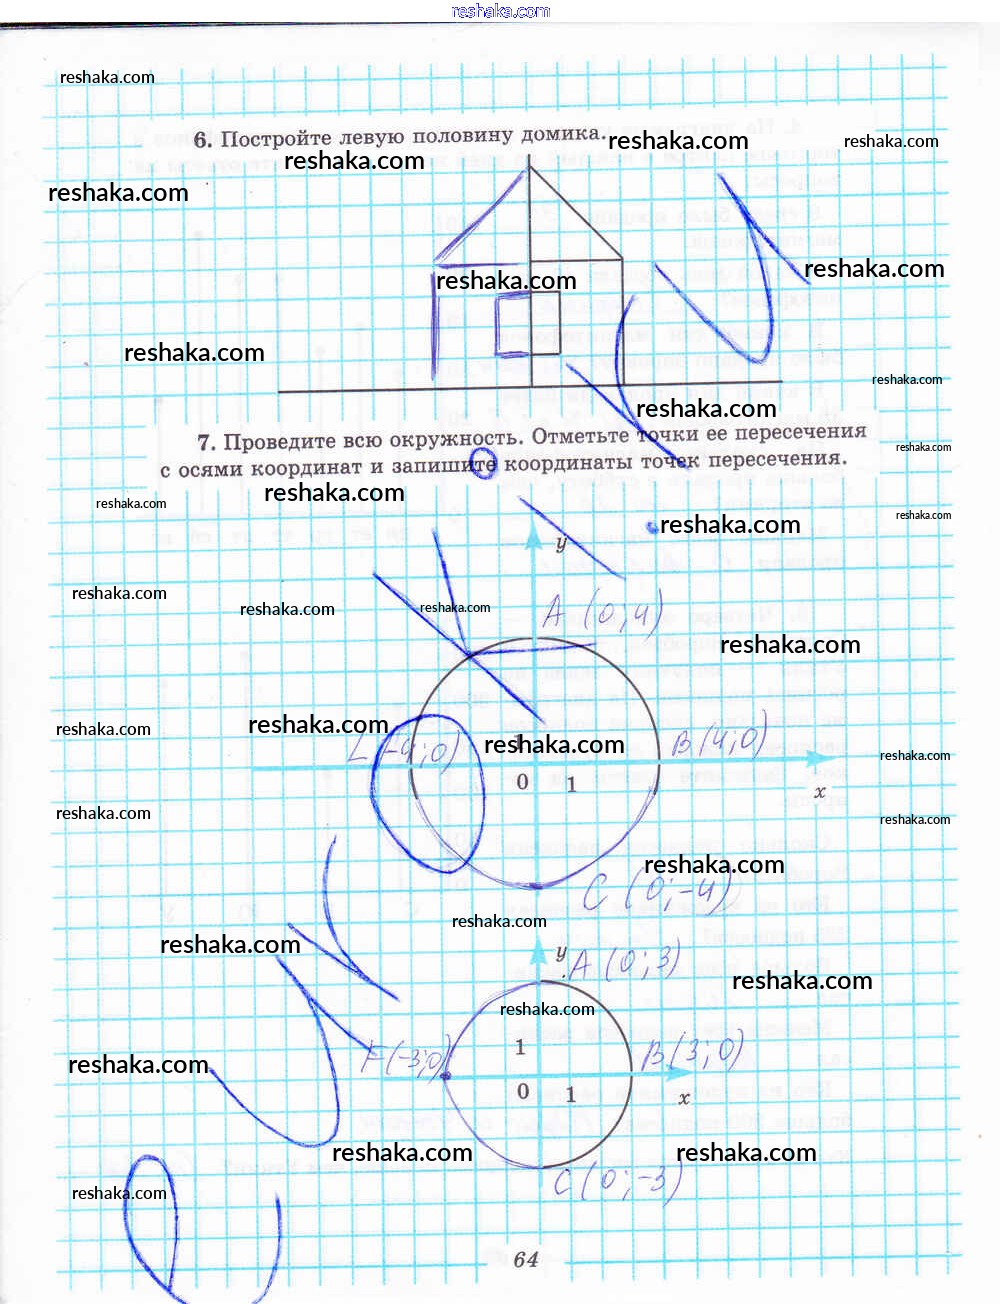 reshaka.com
reshaka.com
6. Постройте левую половину домика.
reshaka.com
reshaka.com
reshaka.com
reshaka.com
reshaka.com
reshaka.com
reshaka.com
reshaka.com
reshaka.com
reshaka.com
7. Проведите всю окружность. Отметьте точки ее пересечения
reshaka.com
с осями координат и запишите координаты точек пересечения.
reshaka.com
reshaka.com
reshaka.com
reshaka.com
y
reshaka.com
reshaka.com
reshaka.com
A (0;4)
reshaka.com
reshaka.com
reshaka.com
L (-4;0)
reshaka.com
B (4;0)
reshaka.com
1
0
1
x
reshaka.com
reshaka.com
reshaka.com
C (0;-4)
reshaka.com
reshaka.com
y
A (0;3)
reshaka.com
reshaka.com
1
F(-3;0)
B(3;0)
reshaka.com
0
1
x
reshaka.com
reshaka.com
C(0;-3)
reshaka.com
64